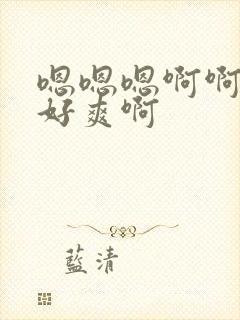 嗯嗯嗯啊啊
好爽啊
藍清